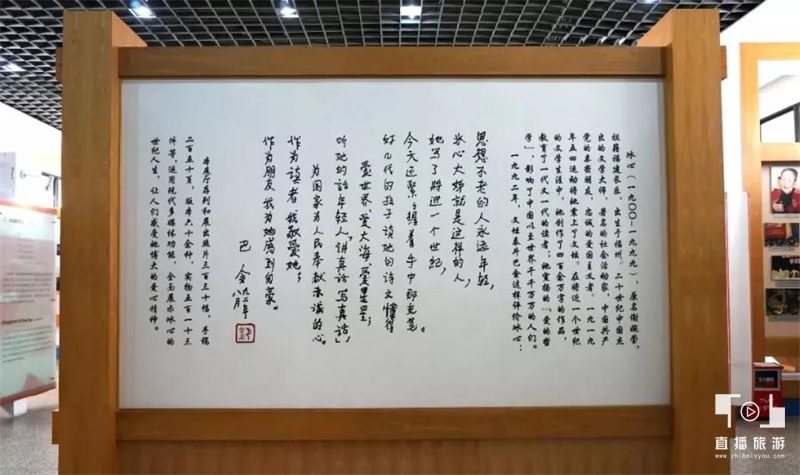 冰心（一九〇〇—一九九九），原名谢婉莹，
祖籍福建长乐，出生于福州。二十世纪中国杰
出的文学大师，著名的社会活动家，中国共产
党的亲密朋友，忠诚的爱国主义者。一九一九
年五四运动将她掌上了文坛。在将近一个世纪
的文学生涯中，她创作了四百余万字的作品，
教育了一代又一代的读者；她宣扬的「爱的哲
学」，影响了中国以至世界千千万万的人们。
一九九二年，文坛泰斗巴金这样评价冰心：
思想不老的人永远年轻，
冰心大姊就是这样的人，
她写了将近一个世纪，
今天还紧紧握着手中那支笔。
好几代的孩子读她的诗文懂得
爱世界，爱大海，爱星星；
听她的话年轻人讲真话，写真话，
为国家为人民奉献赤诚的心。
作为读者我敬爱她；
作为朋友我为她感到自豪。
巴金
九二年八月
本展厅存列和展出照片三百三十幅，手稿
二百五十页，版本六十余种，实物五百一十三
件等，运用现代多媒体功能，全面展示冰心的
世纪人生，让人们感受她博大的爱心精神。
直播旅游
www.zhibolvyou.com